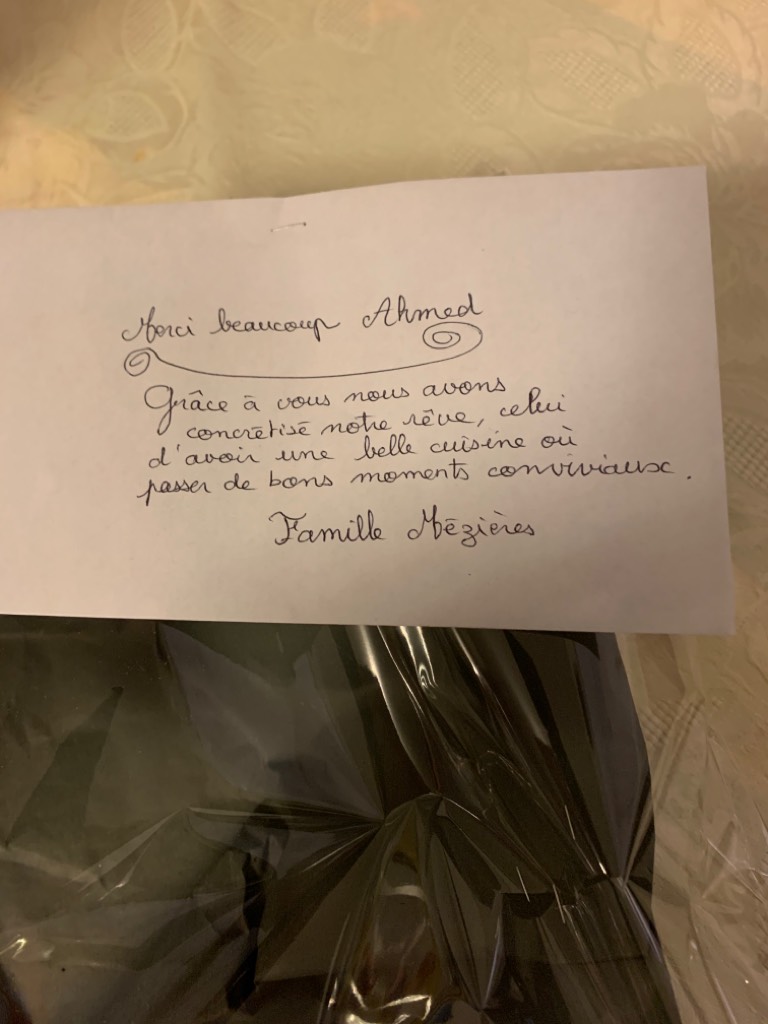 Merci beaucoup Ahmed
Grâce à vous nous avons
concrétisé notre rêve, celui
d'avoir une belle cuisine où
passer de bons moments conviviaux.
Famille Mézières